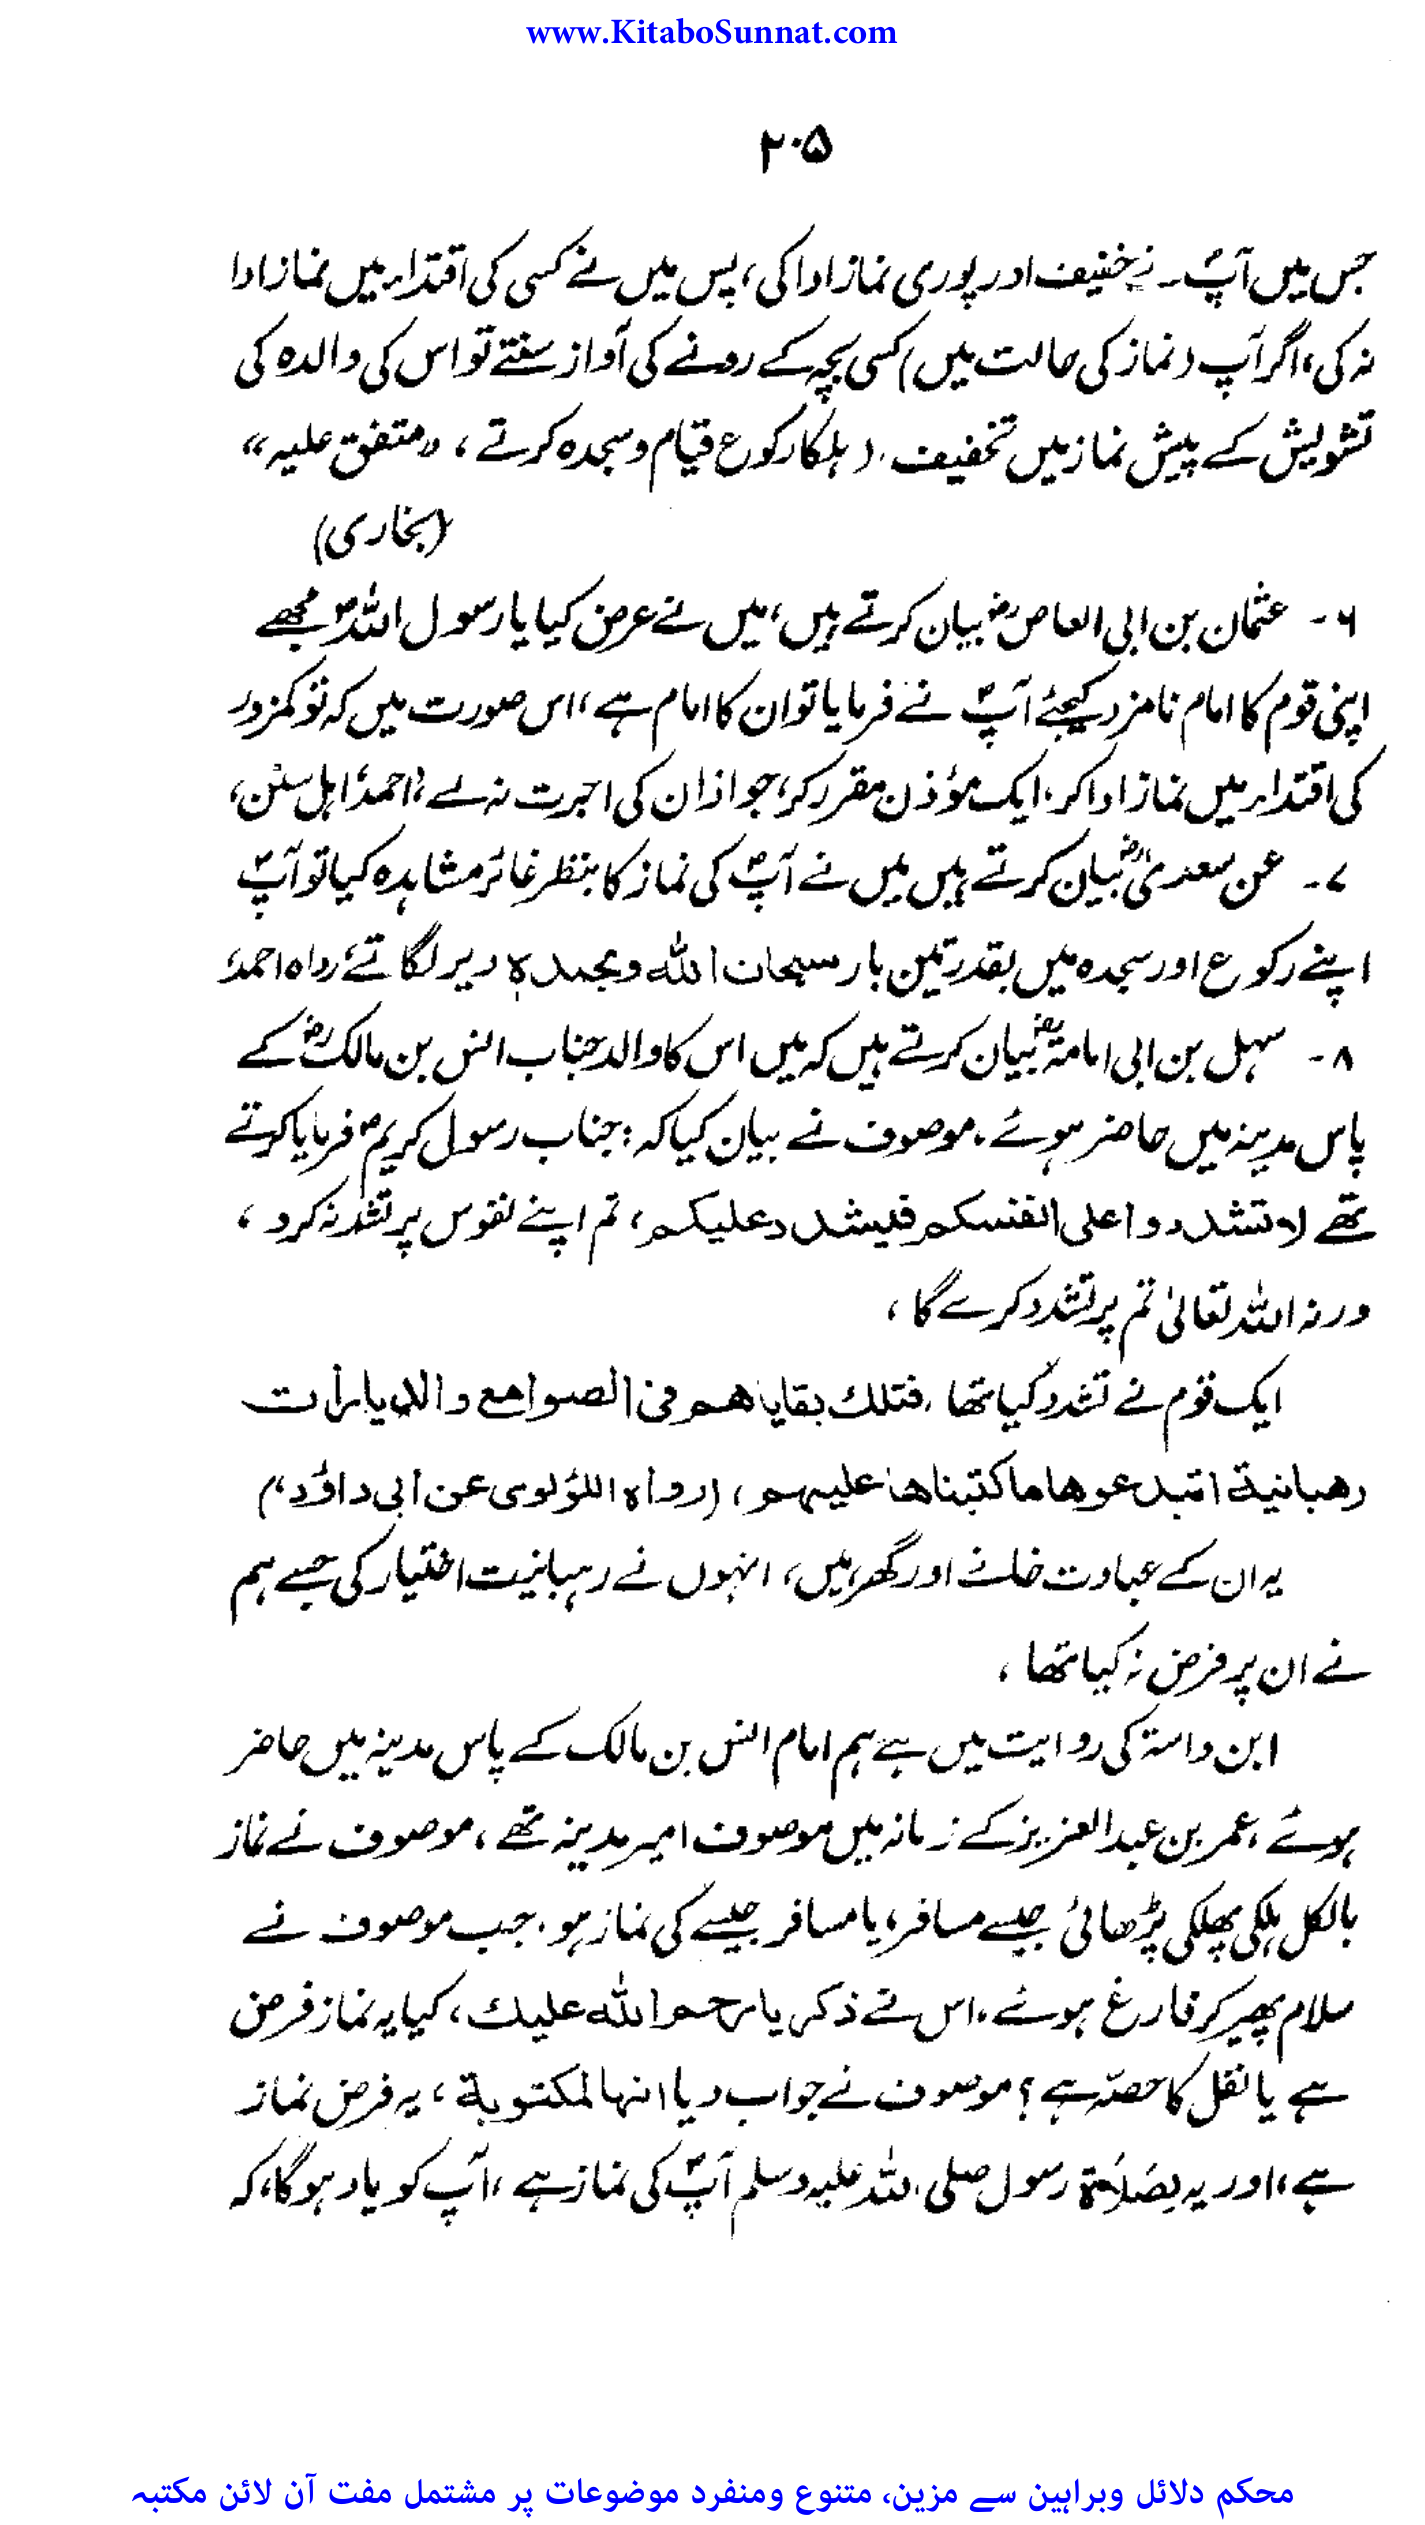 www.KitaboSunnat.com
۲۰۵
جس میں آپؐ نے خفیف اور پوری نماز ادا کی، پس میں نے کسی کی اقتداء میں نماز ادا
نہ کی، اگر آپ (نماز کی حالت میں) کسی بچہ کے رونے کی آواز سنتے تو اس کی والدہ کی
تشویش کے پیش نماز میں تخفیف، (ہلکا رکوع قیام و سجدہ کرتے، "متفق علیہ"
(بخاری)
۶- عثمان بن ابی العاصؓ بیان کرتے ہیں، میں نے عرض کیا یا رسول اللہؐ مجھے
اپنی قوم کا امام نامزد کیجئے آپؐ نے فرمایا تو ان کا امام ہے، اس صورت میں کہ تو کمزور
کی اقتداء میں نماز ادا کر، ایک مؤذن مقرر کر، جو اذان کی اجرت نہ لے، احمدؒ اہل سنن،
۷- عن سعدیؓ بیان کرتے ہیں میں نے آپؐ کی نماز کا بنظر غائر مشاہدہ کیا تو آپؐ
اپنے رکوع اور سجدہ میں بقدر تین بار سبحان اللہ وبحمدہ دیر لگاتے، رواہ احمدؒ
۸- سہل بن ابی امامۃؓ بیان کرتے ہیں کہ میں اس کا والد جناب انس بن مالکؓ کے
پاس مدینہ میں حاضر ہوئے، موصوف نے بیان کیا کہ: جناب رسول کریمؐ فرمایا کرتے
تھے لا تشددوا علی انفسکم فیشدد علیکم، تم اپنے نفوس پر تشدد نہ کرو،
ورنہ اللہ تعالیٰ تم پر تشدد کرے گا،
ایک قوم نے تشدد کیا تھا، فتلك بقایاھم فی الصوامع والدیارات
رھبانیة ابتدعوھا ماکتبناھا علیہم، (رواہ اللؤلوی عن ابی داؤد،)
یہ ان کے عبادت خانے اور گھر ہیں، انہوں نے رہبانیت اختیار کی جسے ہم
نے ان پر فرض نہ کیا تھا،
ابن داستہ کی روایت میں ہے ہم امام انس بن مالک کے پاس مدینہ میں حاضر
ہوئے، عمر بن عبد العزیز کے زمانہ میں موصوف امیر مدینہ تھے، موصوف نے نماز
بالکل ہلکی پھلکی پڑھائی جیسے مسافر، یا مسافر جیسے کی نماز ہو، جب موصوف نے
سلام پھیر کر فارغ ہوئے، اس نے ذکر یا رحم اللہ علیك، کیا یہ نماز فرض
ہے یا نفل کا حصہ ہے؟ موصوف نے جواب دیا انہا لمکتوبة، یہ فرض نماز
ہے، اور یہ بصلاۃ رسول صلی اللہ علیہ وسلم آپؐ کی نماز ہے، آپ کو یاد ہوگا، کہ
محکم دلائل وبراہین سے مزین، متنوع ومنفرد موضوعات پر مشتمل مفت آن لائن مکتبہ